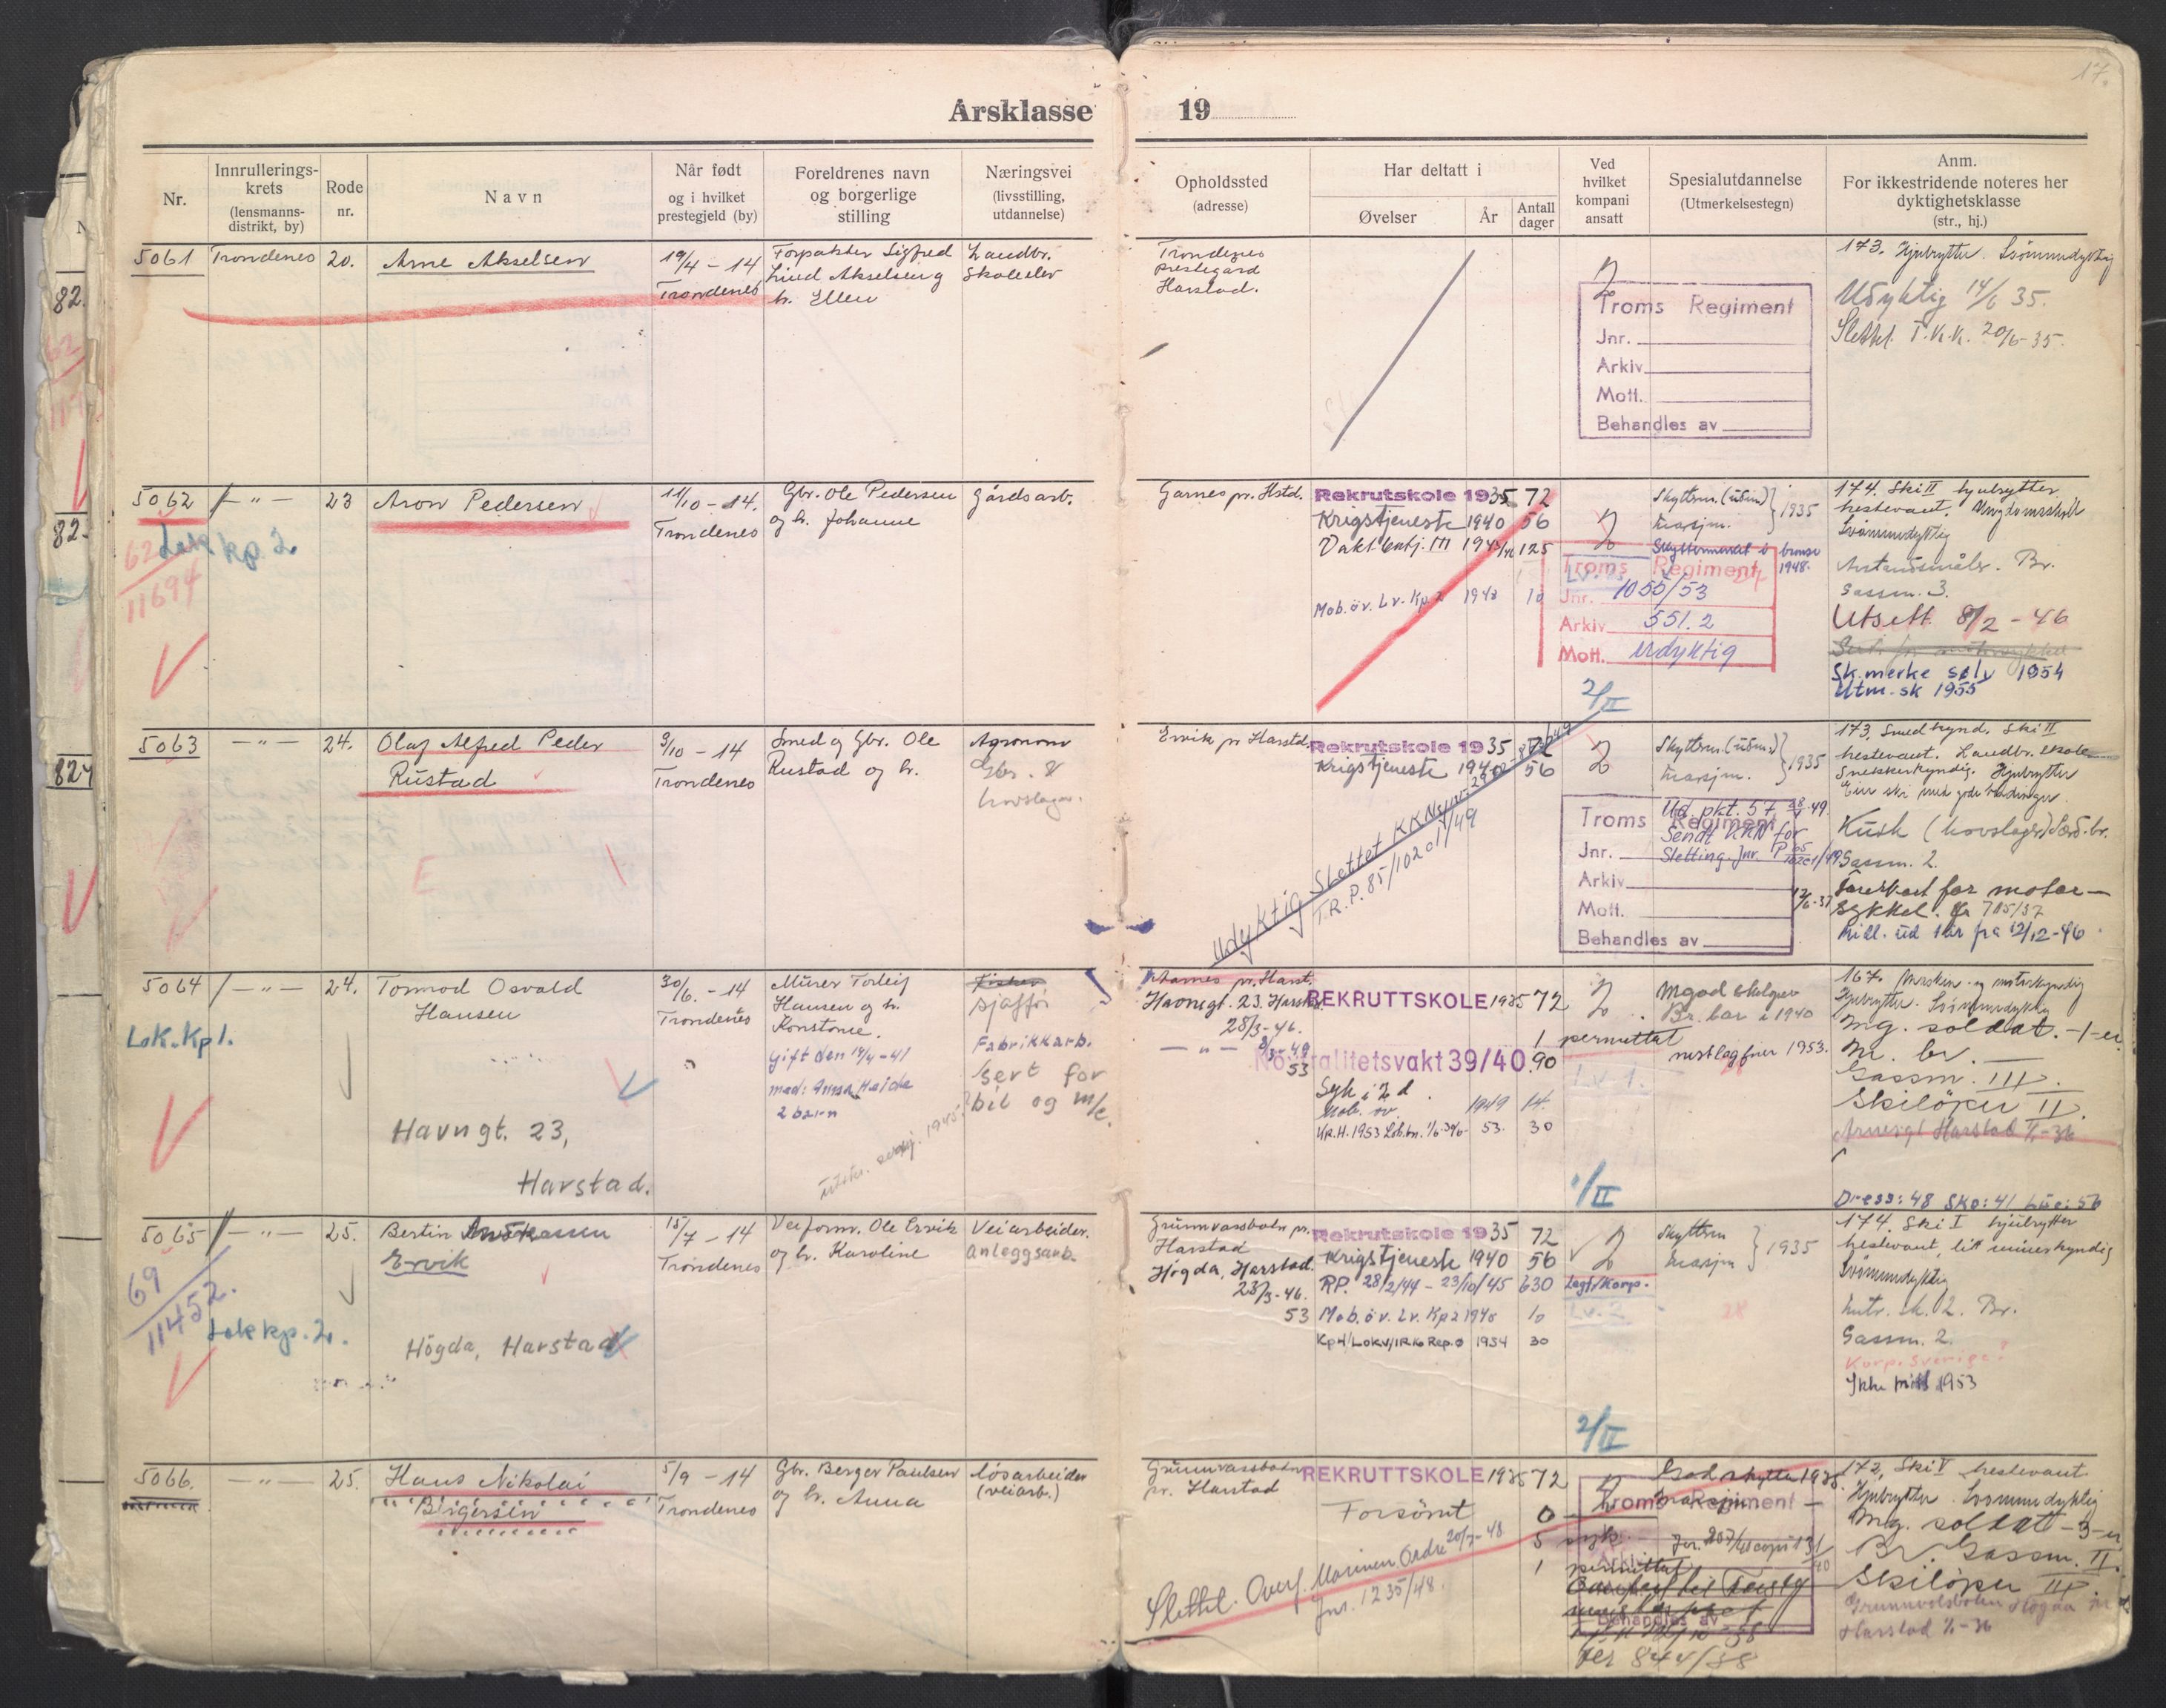 17.
Årsklasse 19
Nr.
Innrullerings-
krets
(lensmanns-
distrikt, by)
Rode
nr.
Navn
Når født
og i hvilket
prestegjeld (by)
Foreldrenes navn
og borgerlige
stilling
Næringsvei
(livsstilling,
utdannelse)
Opholdssted
(adresse)
Har deltatt i
Øvelser
År
Antall
dager
Ved
hvilket
kompani
ansatt
Spesialutdannelse
(Utmerkelsestegn)
Anm.
For ikkestridende noteres her
dyktighetsklasse
(str., hj.)
5061 Trondenes 20. Arne Akselsen
19/4 - 14
Trondenes
Forpakter Sigfred
Lind Akselsen og
h. Ellen
Landbr.
skoleelev
Trondenes
prestegård
Harstad.
2
Troms Regiment
Jnr.
Arkiv
Mott.
Behandles av
173. Hjulrytter. Svömmedyktig
Udyktig 14/6 35.
Slettet T.K.K. 20/6-35.
5062 - " - 23 Aron Pedersen
62
11694
Lok kp. 2
11/10 - 14.
Trondenes
Gbr. Ole Pedersen
og h. Johanne
Gårdsarb.
Garnes pr. Hstd.
Rekrutskole 1935 72
Krigstjeneste 1940 56
Vakt.batj. III 1945/46 125
Mob. öv. Lv. Kp 2 1948 10
2
Skyttrm.
marsjm.
1935
Skyttermerket i bronse
1948.
Troms Regiment
Jnr. 1055/53
Arkiv 551.2
Mott. Udyktig
174. Ski II hjulrytter
hestevant. Ungdomsskole
Svömmedyktig
Avstandsmåler. Br.
Gassm. 3.
Utsett 8/2 - 46
Sk.merke sølv 1954
Utm. sk 1955
2/II
5063 - " - 24. Olaf Alfred Peder
Rustad
E
3/10 - 14
Trondenes
Smed og Gbr. Ole
Rustad og h.
Agronom
Gbr. &
hovslager.
Ervik pr Harstad.
Rekrutskole 1935 72
Krigstjeneste 1940 56
Udyktig Slettet KKN
T.R.P. 85/1020 1/49
2
Skyttrm.
marsjm.
1935
Troms Regiment
Jnr.
Arkiv
Mott.
Behandles av
Ud. pkt. 57
Sendt KKN for
Sletting. Jnr. P
173. Smedkynd. Ski II
hestevant. Landbr. skole
Snekkerkyndig. Hjulrytter
Eier ski med gode bindinger.
Kusk (hovslager)
Gassm. 2.
Förerkort for motor-
sykkel. Jr 705/37
Mill. ud. 1 år fra 12/12-46
5064 - " - 24. Tormod Osvald
Hansen
Lok. Kp 1.
Havngt. 23,
Harstad.
30/6. - 14
Trondenes
Murer Torleif
Hansen og h.
Konstanse.
Gift den 19/4-41
med: Anna Heide
2 barn
Fisker
Sjåfför
Fabrikkarb.
Sert for
bil og m/c.
Havnegt. 23. Harstad
28/3-46.
- " -
53
REKRUTTSKOLE 1935 72
1 permittat
Nöytralitetsvakt 39/40 90
Syk i 2 d.
Mob. öv. 1949 14.
53. 30
2
Lv 1.
Mgad skolgever
Br. bar i 1940
nestlagförer 1953.
167. Marsken- og motorkyndig
Hjulrytter. Svömmedyktig
Mg. soldat. -1-er
M. br.
Gassm. III.
Skilöper II.
Dress: 48 Sko: 41 Lue: 56
1/II
5065 - " - 25. Bertin
Ervik
69
11452.
Lok kp. 2.
Högda, Harstad
15/7 - 14
Trondenes
Veiform. Ole Ervik
og h. Karoline
Veiarbeider.
Anleggsarb.
Grunnvassbotn pr.
Harstad
Högda, Harstad.
23/3-46.
53
Rekrutskole 1935 72
Krigstjeneste 1940 56
RP. 28/2/44 - 23/10/45 630
Mob. öv. Lv. Kp 2 1948 10
1954 30
2
Lagf/Korp.
Lv. 2
Skyttrm
marsjm
1935
174. Ski I hjulrytter
hestevant, litt minerkyndig
Svömmedyktig
Gassm. 2.
Korp. Sverige?
Ikke mött 1953
2/II
5066. - " - 25. Hans Nikolai
Birgersen
5/9 - 14
Trondenes
Gbr. Berger Paulsen
og h. Anna
Lösarbeider
(veiarb.)
Grunnvassbotn
pr. Harstad
REKRUTTSKOLE 1935 72
Forsömt 0
5 syk
1 permittat
Slettet. Overf. Marinen Ordre 20/2-48
Jnr. 1235/48.
2
God skytter 1935.
Troms Regiment
Behandles av
Jnr 844/38
173, Ski V hestevant.
Hjulrytter. Svömmedyktig
Mg. soldat -3-er
Br. Gassm. II.
Skilöper III.
Harstad